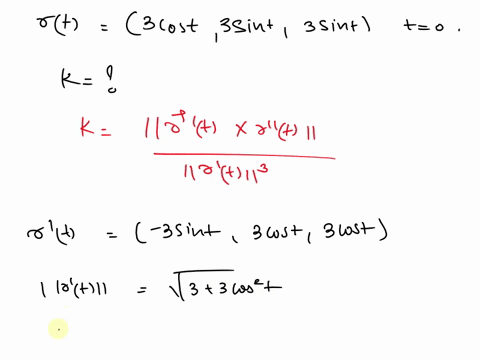 r(t) = (3cost, 3sint, 3sint) t=0.
K = ?
K = ||r'(t) × r''(t)|| / ||r'(t)||³
r'(t) = (-3sint, 3cost, 3cost)
||r'(t)|| = √(3+3cos²t)